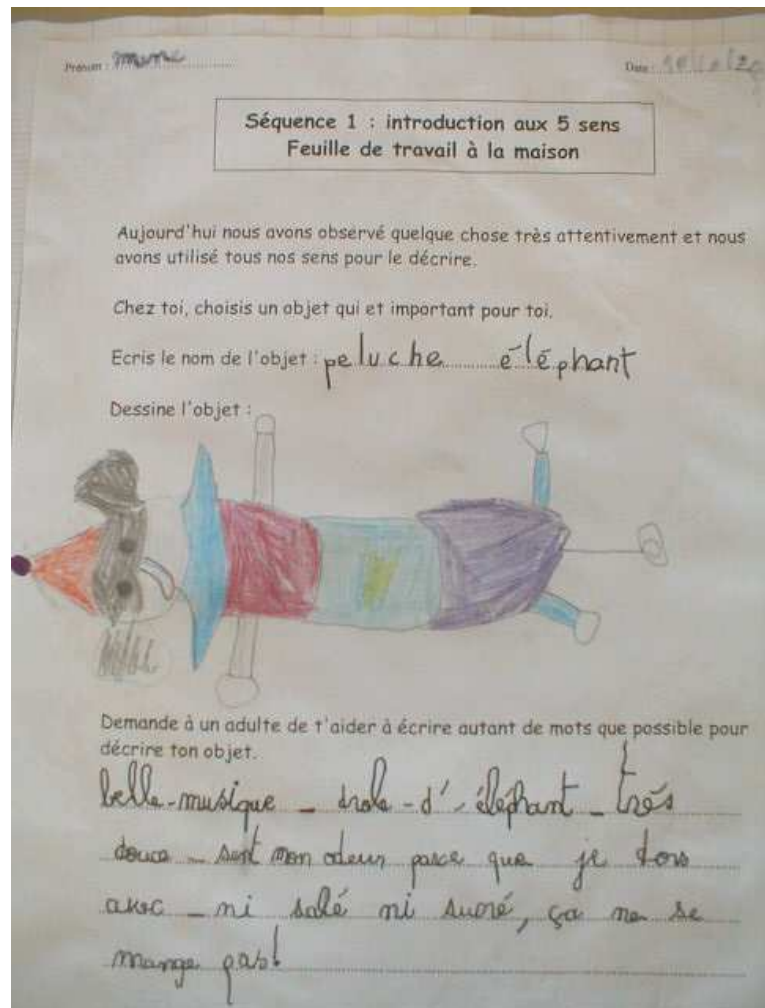 Prénom :
Date :
Séquence 1 : introduction aux 5 sens
Feuille de travail à la maison
Aujourd'hui nous avons observé quelque chose très attentivement et nous
avons utilisé tous nos sens pour le décrire.
Chez toi, choisis un objet qui et important pour toi.
Ecris le nom de l'objet : peluche éléphant
Dessine l'objet :
Demande à un adulte de t'aider à écrire autant de mots que possible pour
décrire ton objet.
belle-musique - drole-d'-éléphant - très
douce - sent mon odeur parce que je dors
avec - ni salé ni sucré, ça ne se
mange pas!